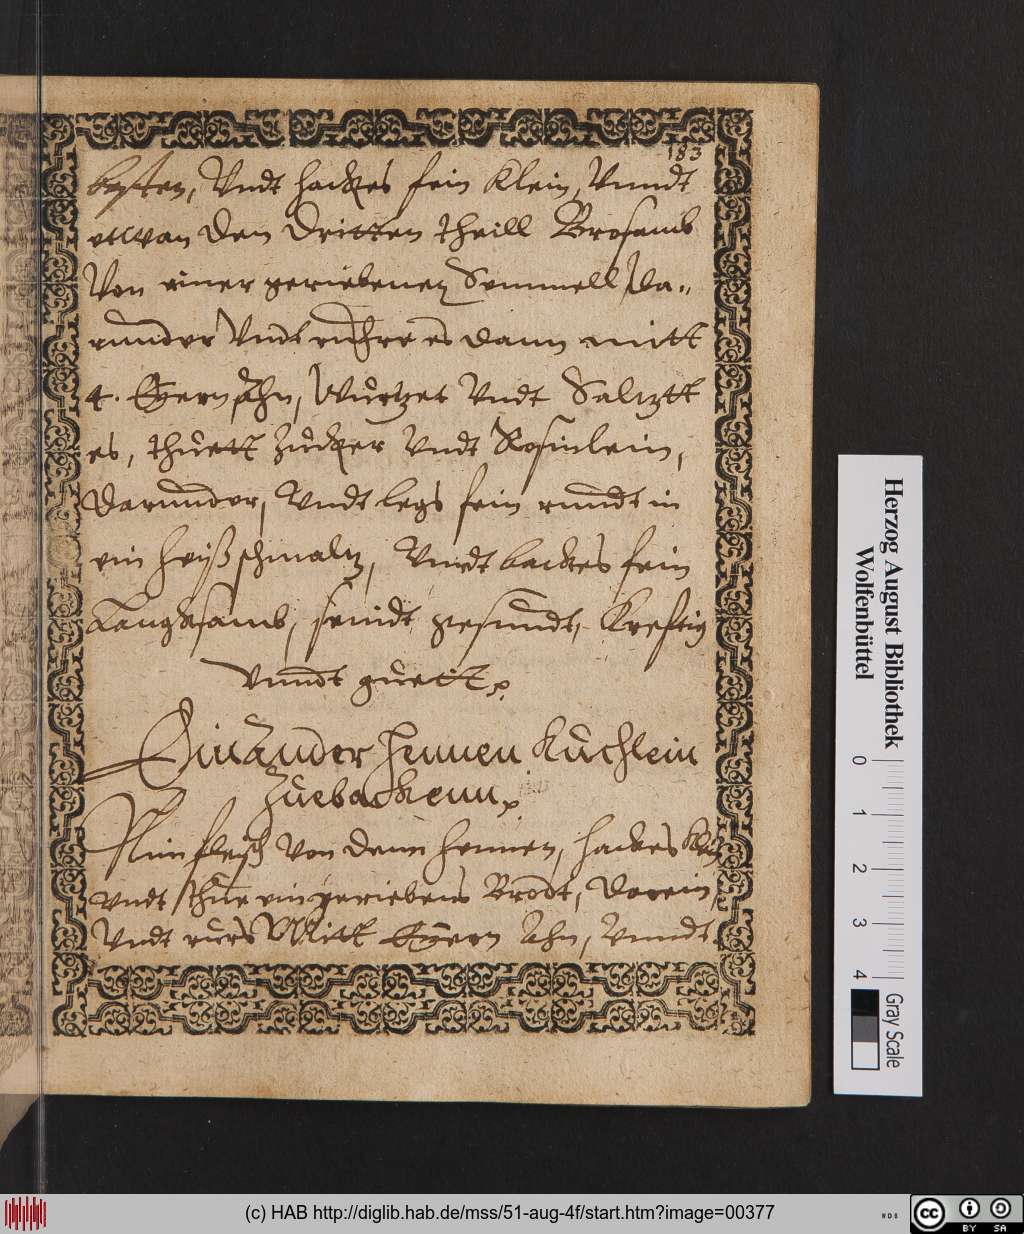 183
besten, Vndt hackes fein Klein, Vnndt
ettwan den dritten theill Brosamb
Von einer geriebenen Semmell, da=
runnder Vndt rühre es dann mitt
4. Eÿern Ahn, Würtzet Vndt Saltztt
es, thuett Zucker Vndt Rosinlein,
darunder, Vndt legs fein rundt in
ein heiß schmaltz, Vnndt backes fein
Langksamb, seindt gesundt, Kreftig
Vnndt guett.
Ein Ander hennen Küchlein
Zuebackenn.
Nim fleisch Von denn hennen, hackes Klein
Vndt thue ein geriebens Brodt, darein,
Vndt rürs Mitt Eÿern Ahn, Vnndt
Herzog August Bibliothek
Wolfenbüttel
0 1 2 3 4
Gray Scale
(c) HAB http://diglib.hab.de/mss/51-aug-4f/start.htm?image=00377
WDB
cc BY SA